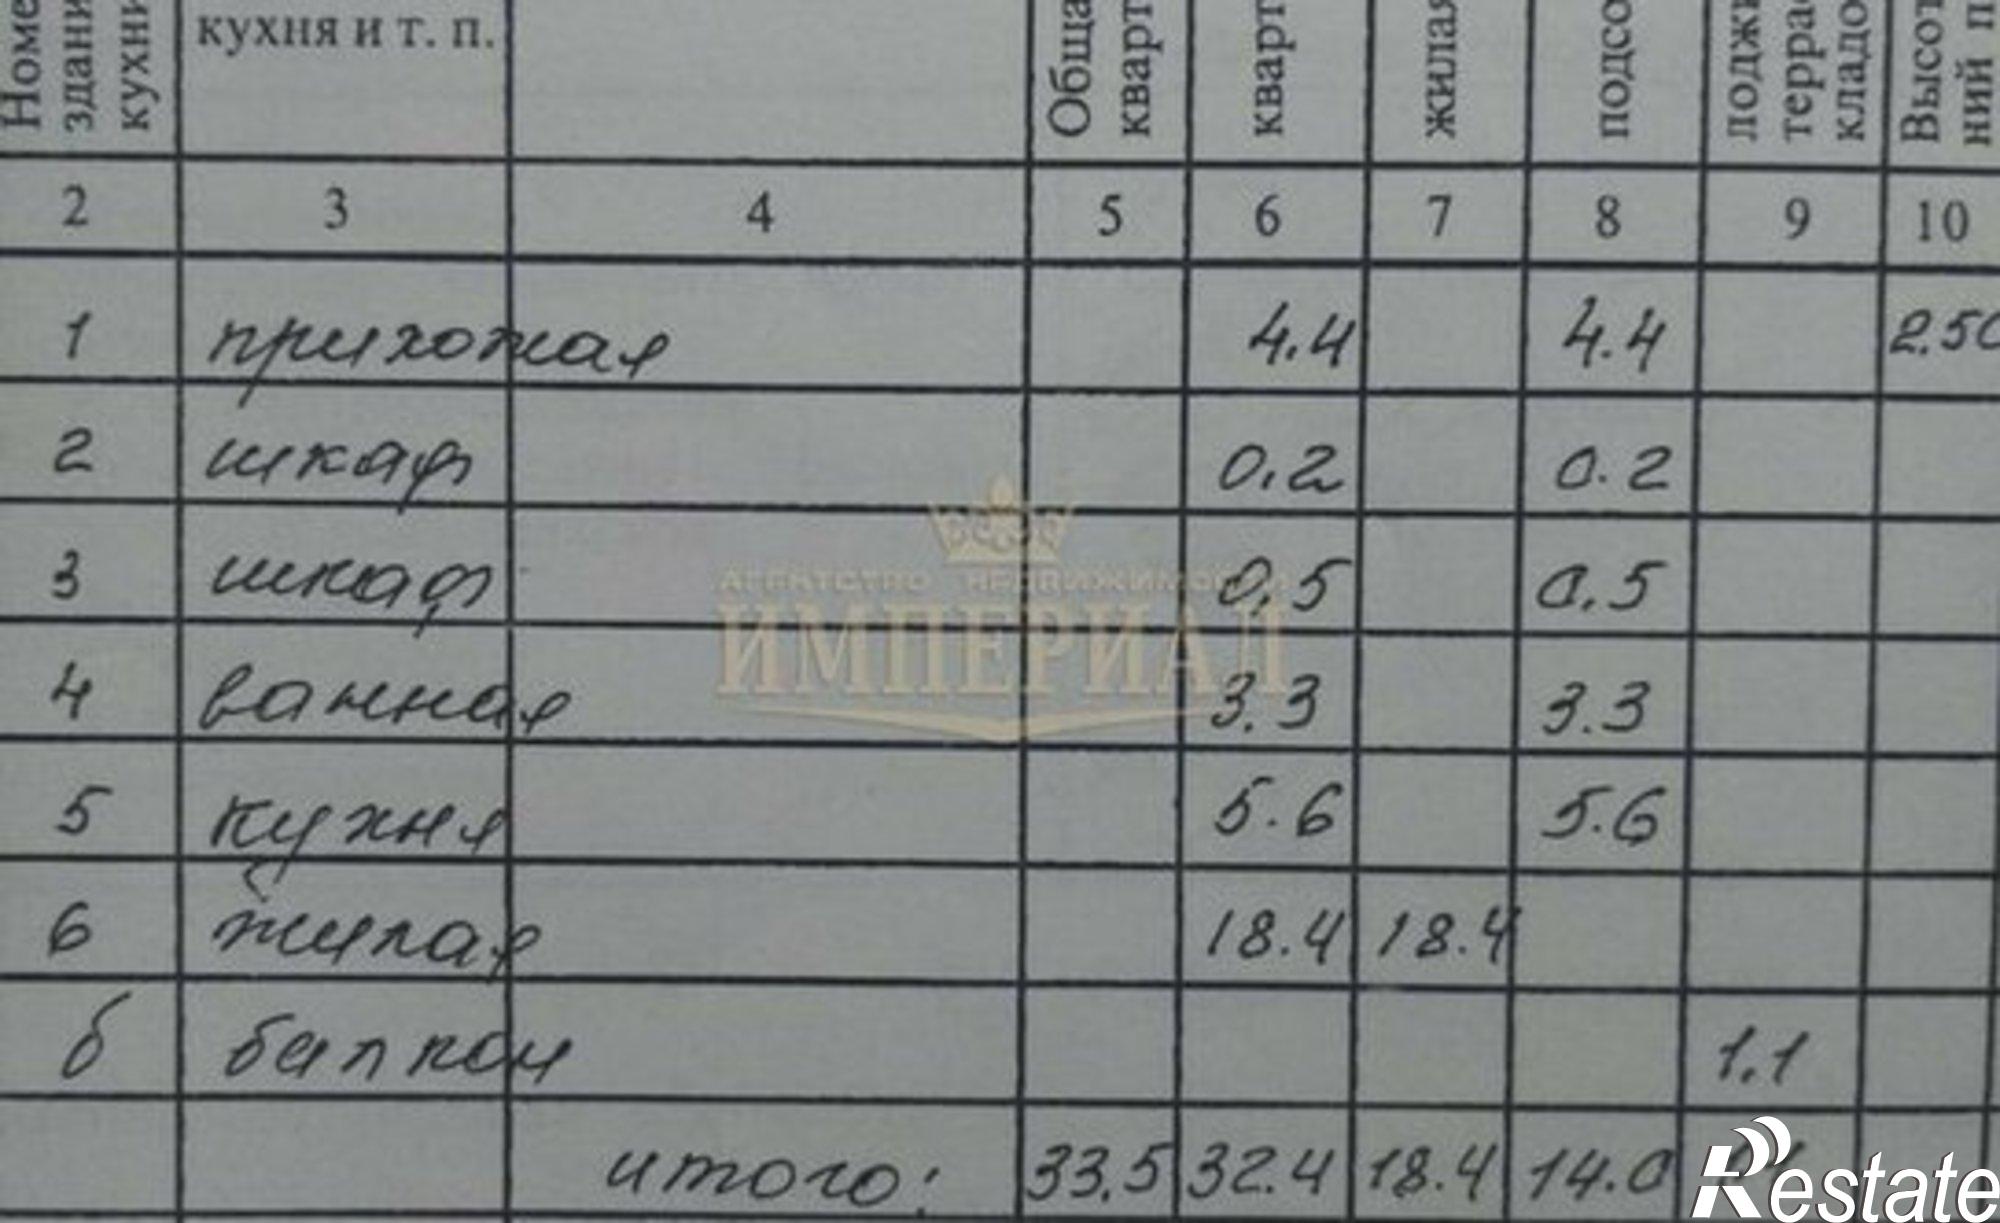 Номе
здани
кухни
кухня и т. п.
Обща
кварт
кварт
жилая
подсо
лоджи
террас
кладо
Высот
ний п
2 3 4 5 6 7 8 9 10
1 прихожая 4.4 4.4 2.50
2 шкаф 0.2 0.2
3 шкаф 0.5 0.5
4 ванная 3.3 3.3
5 кухня 5.6 5.6
6 жилая 18.4 18.4
б балкон 1.1
итого: 33.5 32.4 18.4 14.0
АГЕНТСТВО НЕДВИЖИМОСТИ
ИМПЕРИАЛ
Restate